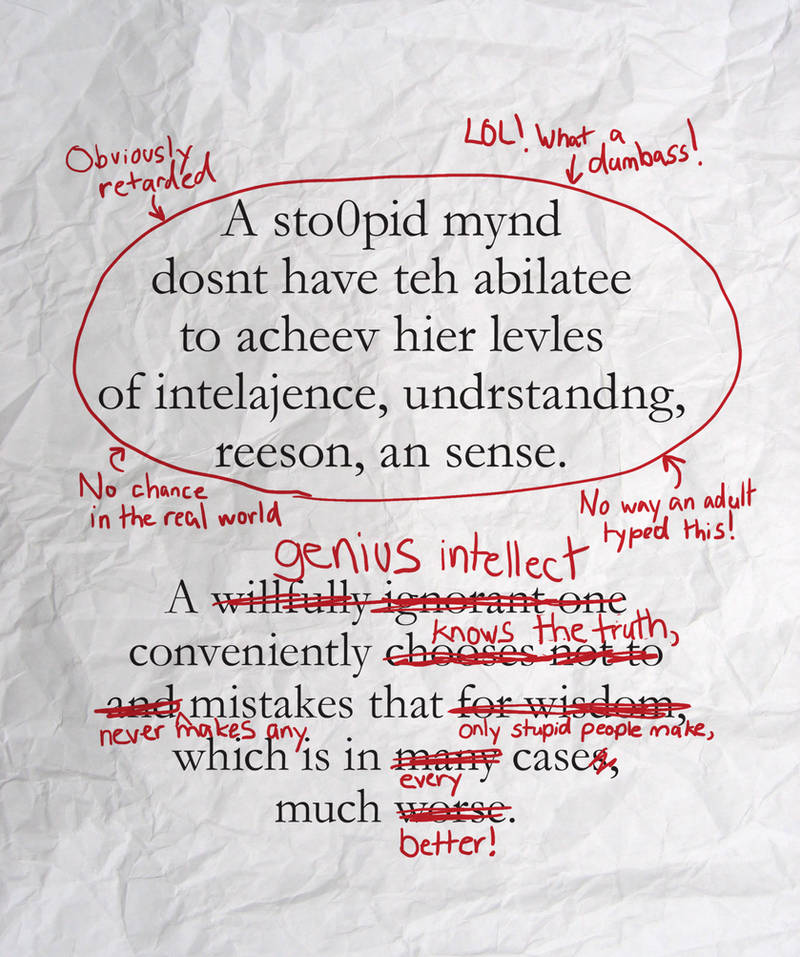 Obviously
retarded
LOL! What a
dumbass!
A sto0pid mynd
dosnt have teh abilatee
to acheev hier levles
of intelajence, undrstandng,
reeson, an sense.
No chance
in the real world
No way an adult
typed this!
genius intellect
A willfully ignorant one
knows the truth,
conveniently chooses not to
and mistakes that for wisdom,
never makes any
only stupid people make,
which is in many cases,
every
much worse.
better!